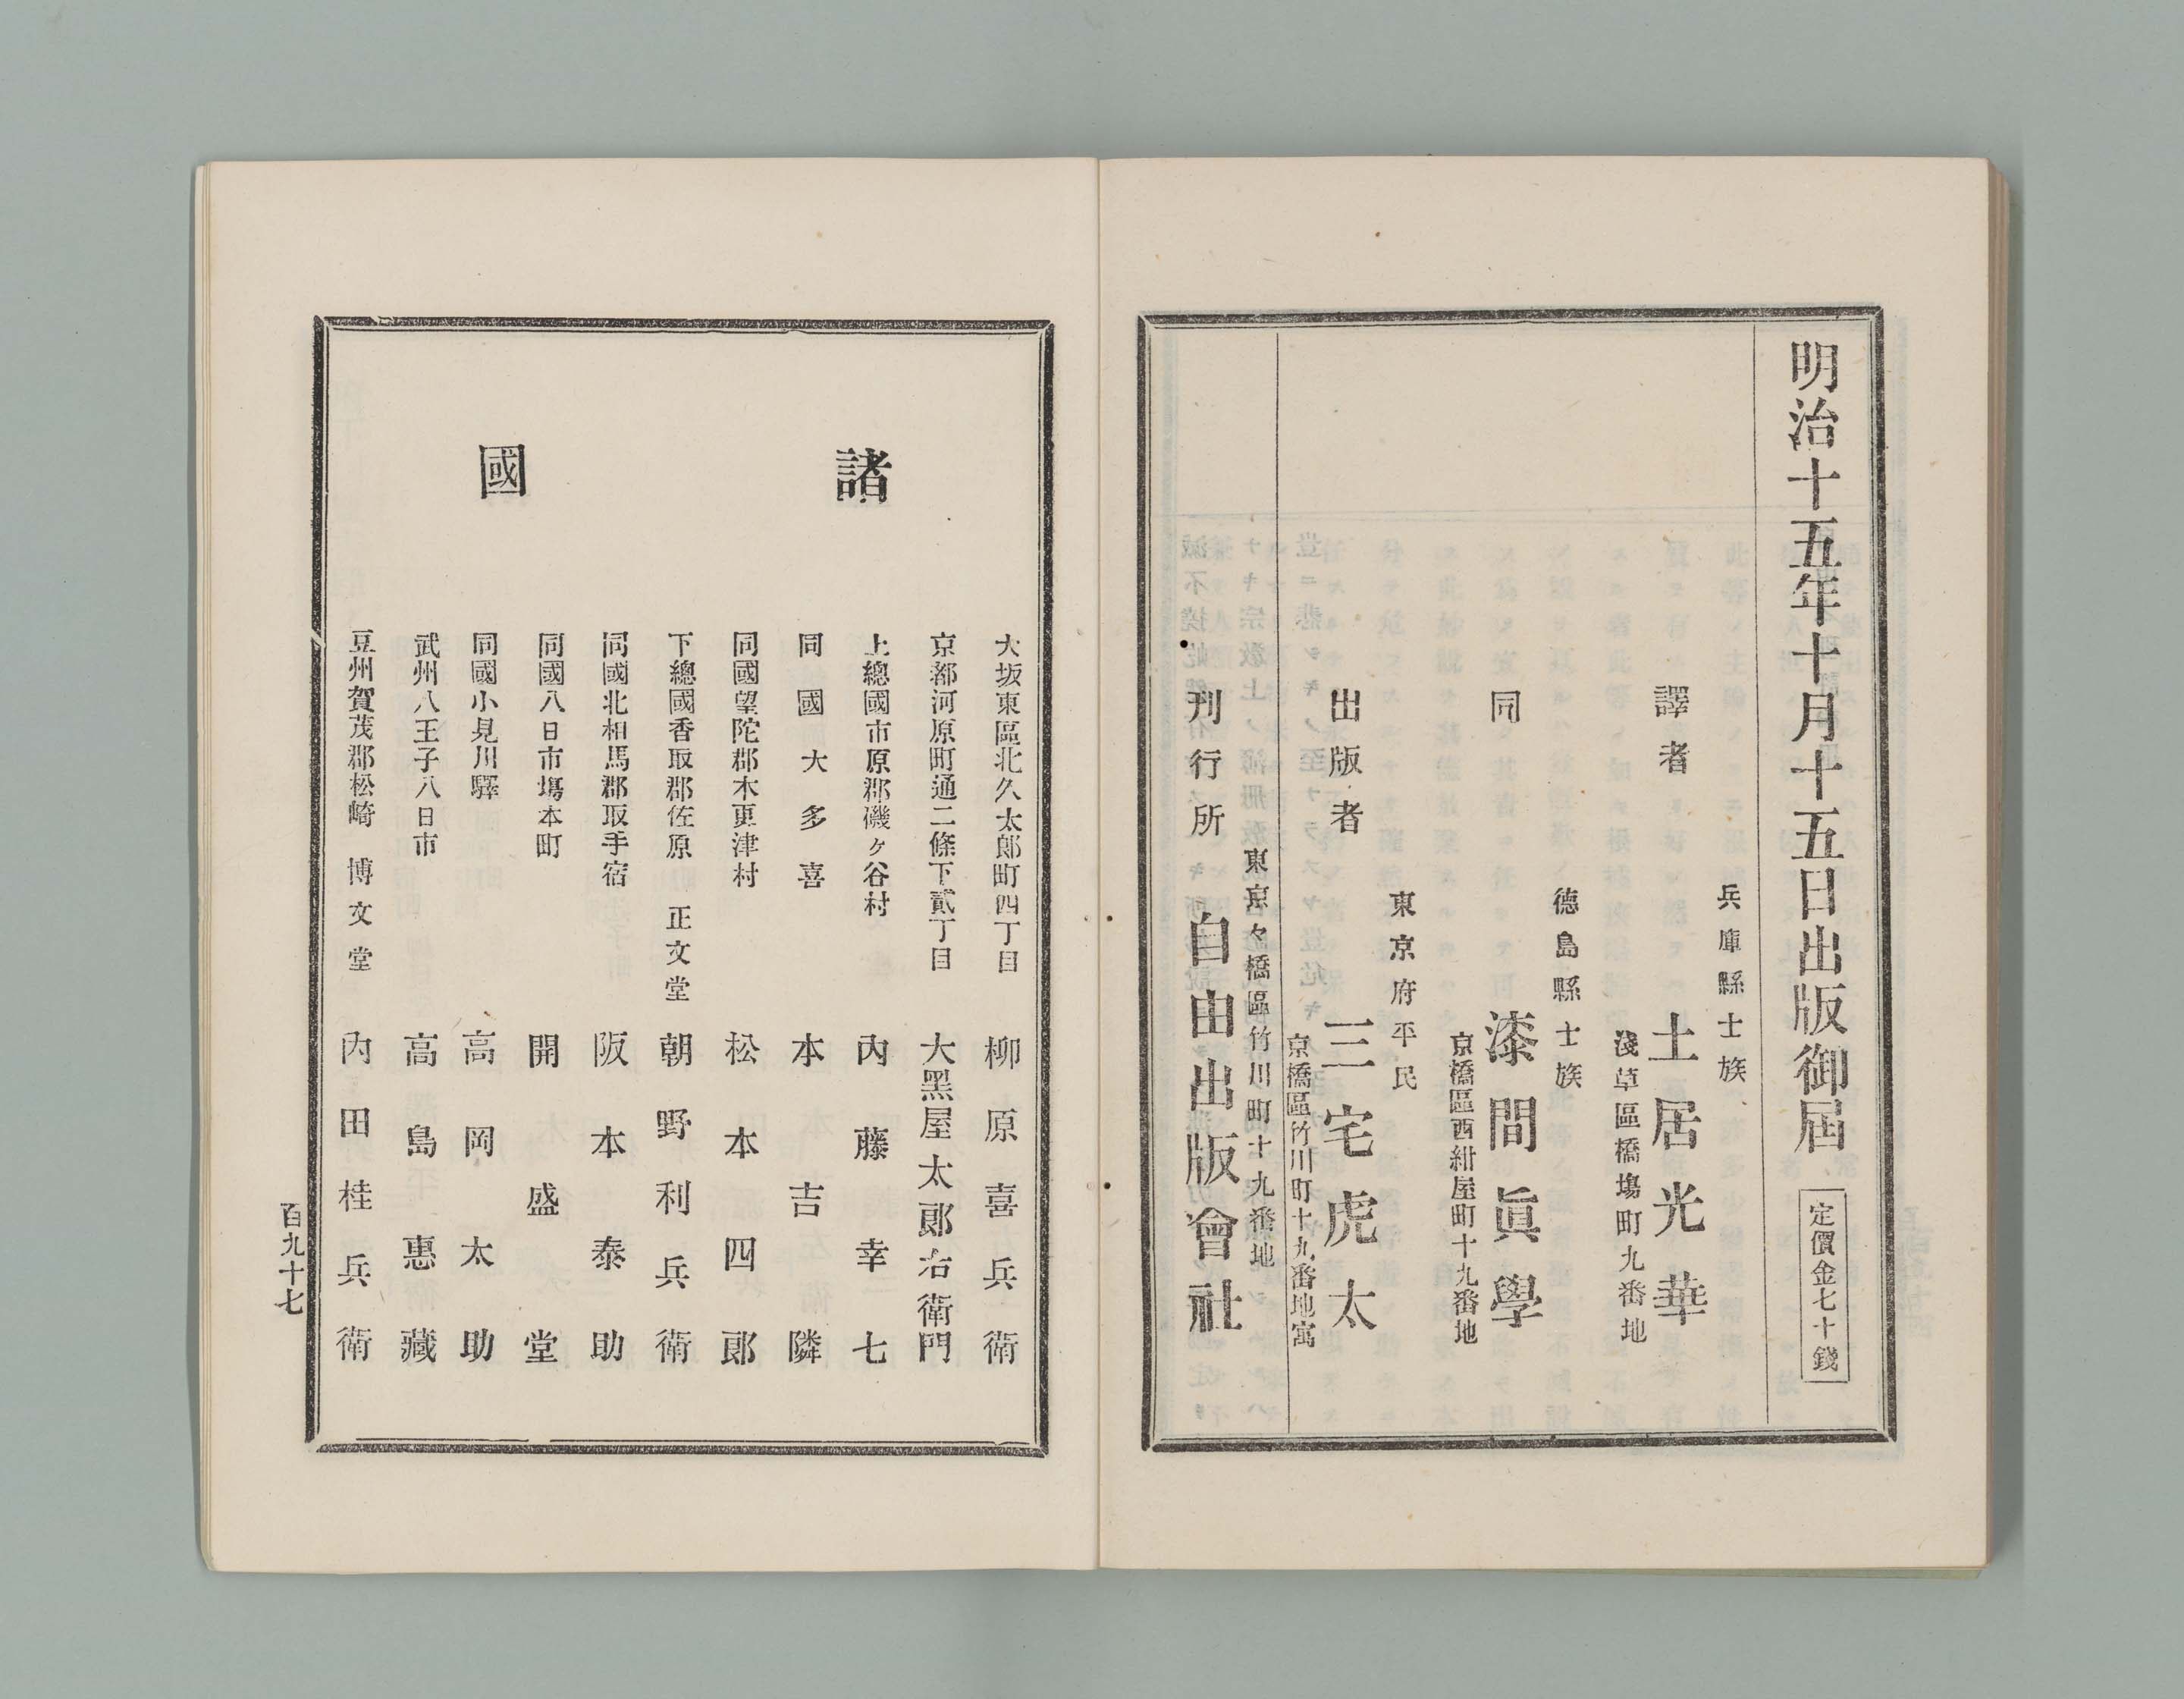 明治十五年十月十五日出版御屆
定價金七十錢
兵庫縣士族
譯者
土居光華
淺草區橋塲町九番地
德島縣士族
同
漆間眞學
京橋區西紺屋町十九番地
東京府平民
出版者
三宅虎太
京橋區竹川町十九番地寓
東京々橋區竹川町十九番地
刊行所
自由出版會社
諸國
大坂東區北久太郎町四丁目 柳原喜兵衛
京都河原町通二條下貳丁目 大黑屋太郎治衛門
上總國市原郡磯ヶ谷村 內藤幸七
同國大多喜 本吉隣
同國望陀郡木更津村 松本四郎
下總國香取郡佐原 正文堂 朝野利兵衛
同國北相馬郡取手宿 阪本泰助
同國八日市塲本町 開盛堂
同國小見川驛 高岡太助
武州八王子八日市 高島惠藏
豆州賀茂郡松崎 博文堂 內田桂兵衛
百九十七